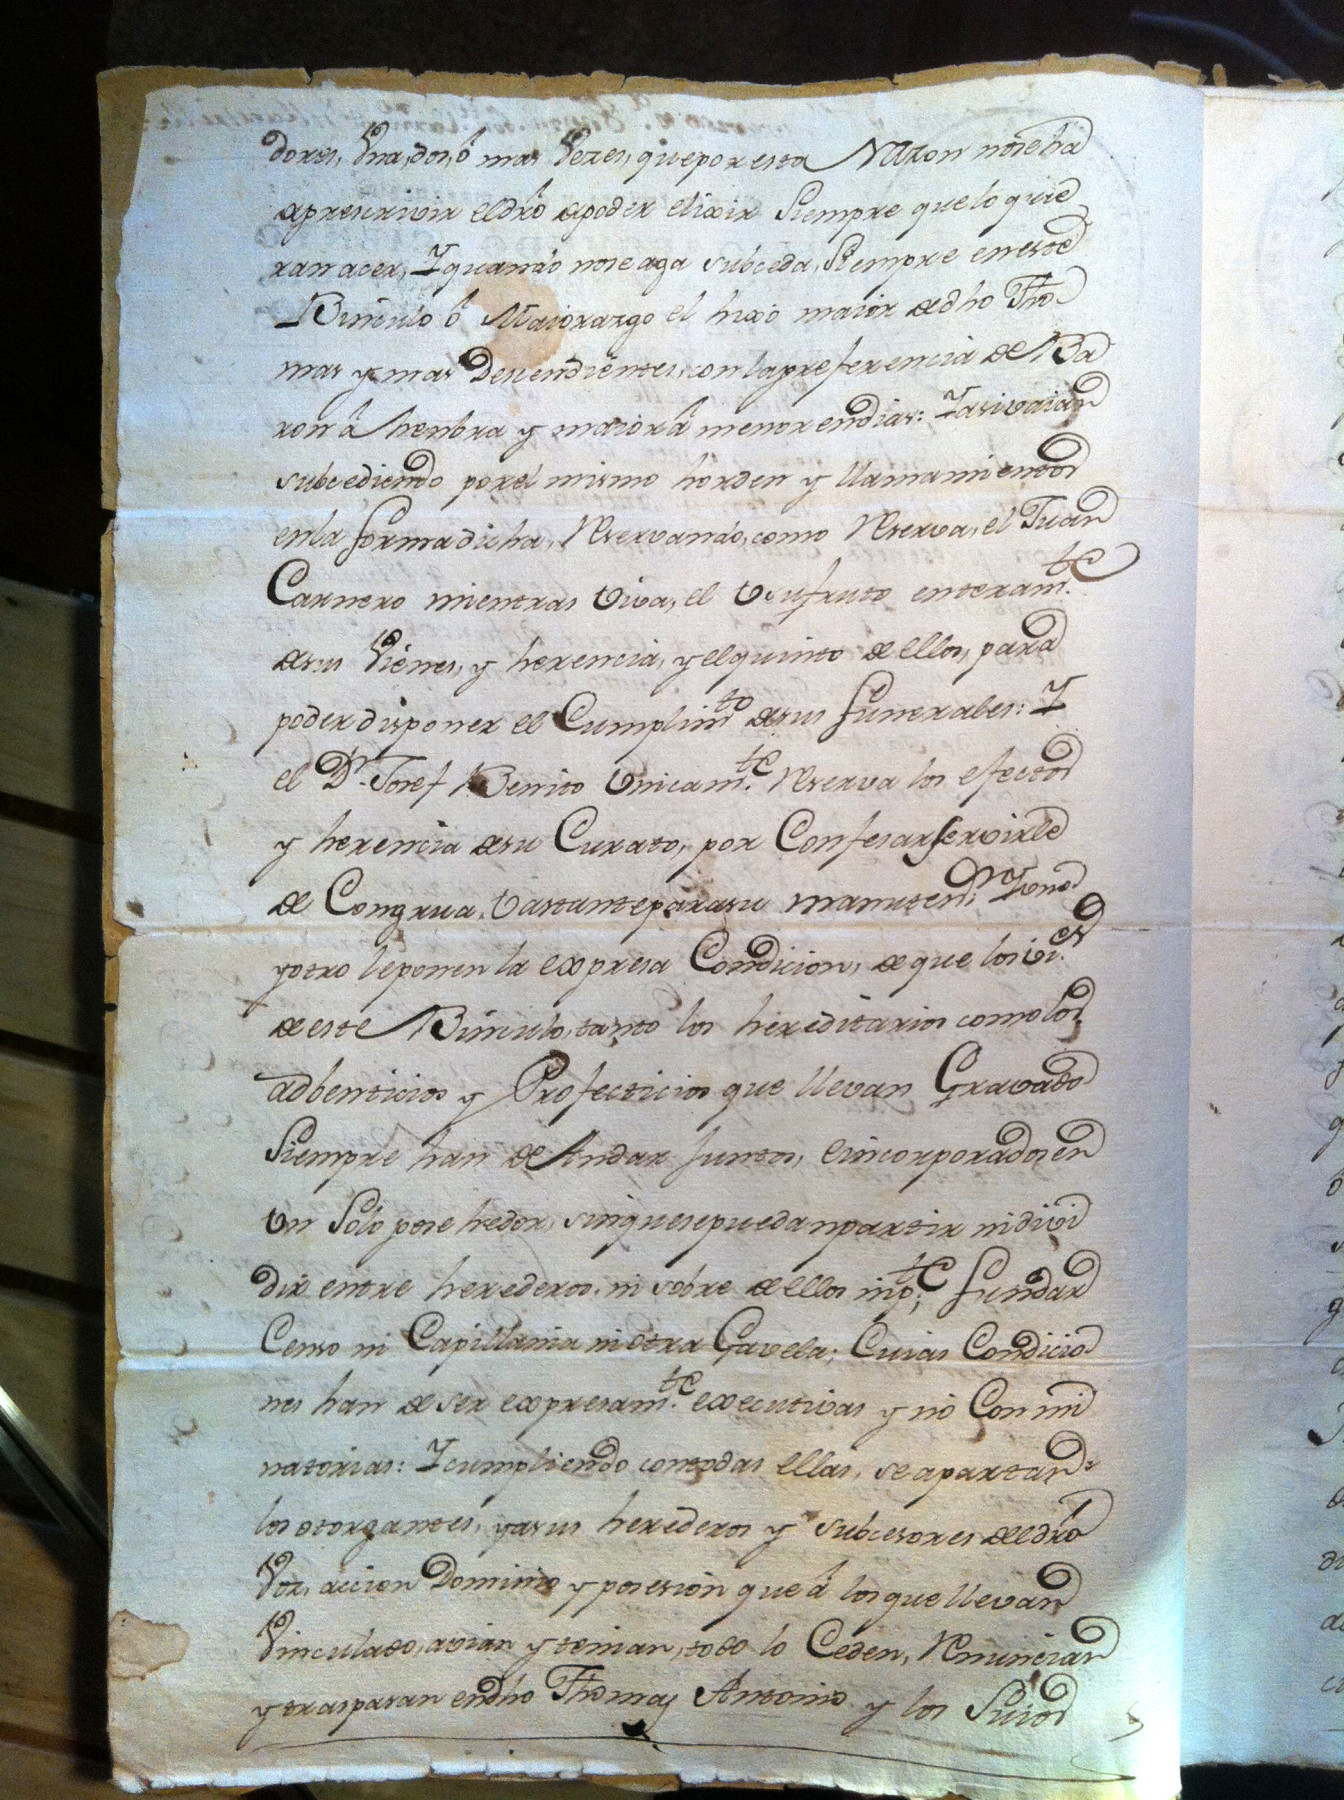 dores, Vna, dos, ô mas Vezes, que por esta Razon nose ha
de prescrivir el dr̃o de poder elixir Siempre que lo quie
ran acer, Y quando nose aga subceda, Siempre en este
Binculo ô Maiorazgo el hixo maior de dho Tho
mas y mas Descendientes, con la preferencia de Ba
ron â henbra y maior â menor en dias: Y asi vaian
subcediendo por el mismo horden y llamamientos
en la forma dicha, Reservando, como Reserva, el Juan
Carnero mientras viva, el vsufruto enteram.te
de sus Vienes, y herencia, y el quinto de ellos, para
poder disponer el Cumplim.to de sus funerales: Y
el D.n Josef Benito vnicam.te Reserva los efectos
y herencia de su Curato, por Confesar servirle
de Congrua, vastante para su manuten.n Y vno
y otro le ponen la expresa Condicion, de que los vi.es
de este Binculo, tanto los hereditarios como los
adbenticios y Profecticios que llevan Gravados
Siempre han de Andar Juntos, e incorporados en
vn Solo pose hedor, sin que se puedan partir ni divi
dir entre herederos, ni sobre de ellos inp.te fundar
Censo ni Capillania ni otra Gavela; Cuias Condicio
nes han de ser expresam.te executivas y no Conmi
natorias: Y cumpliendo con todas ellas, se apartan
los otorgantes, y a sus herederos y subcesores de el dr̃o
Voz, accion Dominio y posesion que â los que llevan
Vinculado, avian y tenian, todo lo Ceden, Renuncian
y traspasan en dho Thomas Antonio y los Suios